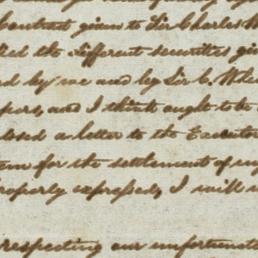 contract given to Sir Charles W
the different securities gi
by me and by Sir C. Wil
and I think ought to be
a letter to the Executo
for the settlement of my
properly expressed, I will
respecting our unfortunate